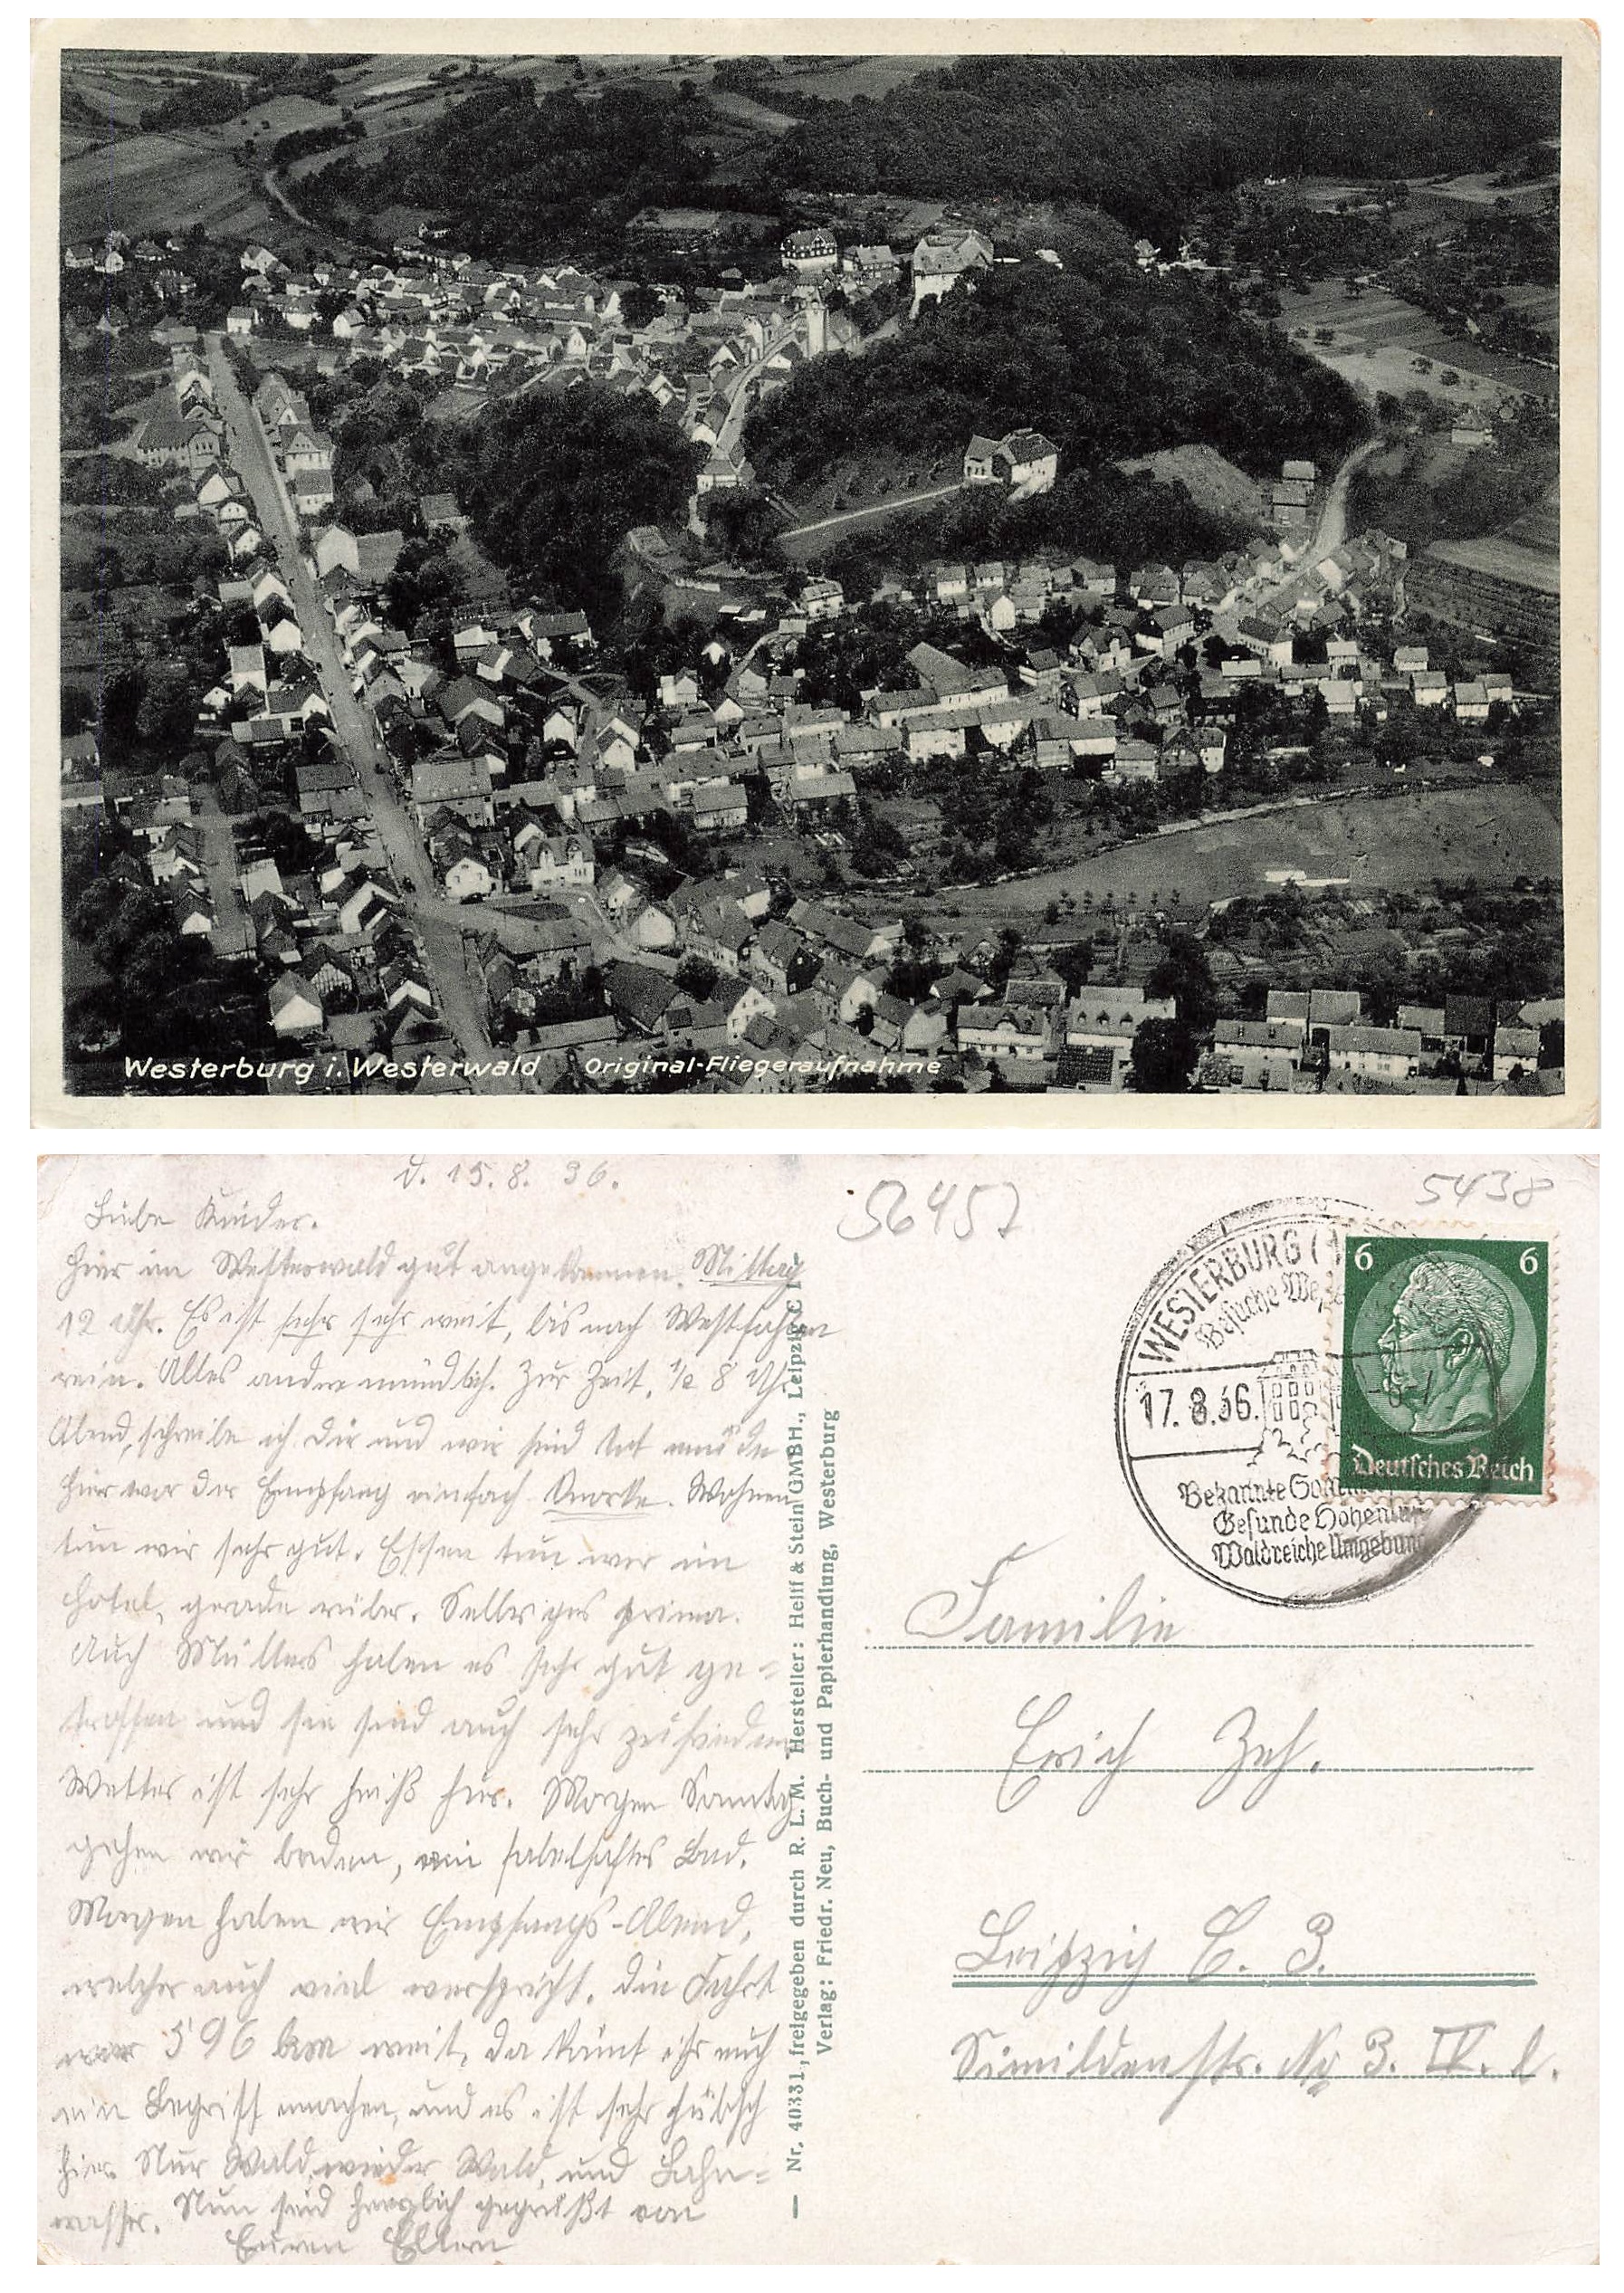 Westerburg i. Westerwald Original-Fliegeraufnahme
d. 15. 8. 36.
Liebe Kinder.
Hier im Westerwald gut angekommen. Mittag
12 Uhr. Es ist sehr sehr weit, bis nach Westfahlen
rein. Alles andre mündlich. Zur Zeit, ½ 8 Uhr
Abend, schreibe ich Dir und wir sind tot müde
hier war der Empfang einfach Knorke. Wohnen
tun wir sehr gut. Essen tun wir im
Hotel, gerade rüber. Selbiges prima.
Auch Müllers haben es sehr gut ge=
troffen und sie sind auch sehr zufrieden
Wetter ist sehr heiß hier. Morgen Sonntag
gehen wir baden, ein fabelhaftes Bad.
Morgen haben wir Empfangs-Abend,
welcher auch viel verspricht. Die Fahrt
war 596 km weit, da könnt ihr euch
ein Begriff machen, und es ist sehr hübsch
hier. Nur Wald, wieder Wald, und
wasser. Nun seid herzlich gegrüßt von
Euren Eltern
— Nr. 40331, freigegeben durch R. L. M. Hersteller: Helff & Stein GMBH., Leipzig C 1 —
Verlag: Friedr. Neu, Buch- und Papierhandlung, Westerburg
56457
5438
WESTERBURG
Besuche
17. 8. 36.
Bekannte
Gesunde Höhenluft
Waldreiche Umgebung
6 6
Deutsches Reich
Familie
Erich Zeh.
Leipzig C. 3.
Simildenstr. No 3. IV. l.